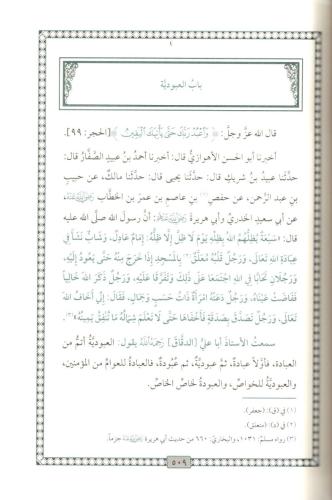 بابُ العبوديَّة
قال الله عزَّ وجلَّ: ﴿وَٱعْبُدْ رَبَّكَ حَتَّى يَأْتِيَكَ ٱلْيَقِينُ﴾ [الحجر: ٩٩].
أخبرنا أبو الحسن الأهوازيُّ قال: أخبرنا أحمدُ بنُ عبيدٍ الصَّفَّارُ قال:
حدَّثنا عبيدُ بنُ شريكٍ قال: حدَّثنا يحيى قال: حدَّثنا مالكٌ، عن حبيبِ
بنِ عبد الرَّحمن، عن حفصِ(١) بنِ عاصمِ بنِ عمرَ بنِ الخطَّابِ رضي الله عنه
عن أبي سعيدٍ الخدريِّ وأبي هريرةَ رضي الله عنهما: أنَّ رسولَ الله صلَّى الله عليه
قال: «سَبْعَةٌ يُظِلُّهُمُ اللهُ بِظِلِّهِ يَوْمَ لَا ظِلَّ إِلَّا ظِلُّهُ: إِمَامٌ عَادِلٌ، وَشَابٌّ نَشَأَ فِي
عِبَادَةِ اللهِ تَعَالَى، وَرَجُلٌ قَلْبُهُ مُعَلَّقٌ(٢) بِالْمَسْجِدِ إِذَا خَرَجَ مِنْهُ حَتَّى يَعُودَ إِلَيْهِ،
وَرَجُلَانِ تَحَابَّا فِي اللهِ اجْتَمَعَا عَلَى ذَلِكَ وَتَفَرَّقَا عَلَيْهِ، وَرَجُلٌ ذَكَرَ اللهَ خَالِياً
فَفَاضَتْ عَيْنَاهُ، وَرَجُلٌ دَعَتْهُ امْرَأَةٌ ذَاتُ حَسَبٍ وَجَمَالٍ، فَقَالَ: إِنِّي أَخَافُ اللهَ
تَعَالَى، وَرَجُلٌ تَصَدَّقَ بِصَدَقَةٍ فَأَخْفَاهَا حَتَّى لَا تَعْلَمَ شِمَالُهُ مَا تُنْفِقُ يَمِينُهُ»(٣).
سمعتُ الأستاذَ أبا عليٍّ [الدقَّاقَ] رحمه الله يقول: العبوديَّةُ أتمُّ من
العبادة، فأوَّلاً عبادةٌ، ثمَّ عبوديَّةٌ، ثم عُبُودةٌ. فالعبادةُ للعوامِّ من المؤمنين،
والعبوديَّةُ للخواصِّ، والعبودةُ لخاصِّ الخاصِّ.
(١) في (ق): (جعفر).
(٢) في (ه): (متعلق).
(٣) رواه مسلم: ١٠٣١، والبخاري: ٦٦٠ من حديث أبي هريرة رضي الله عنه جزماً.
٥٠٩